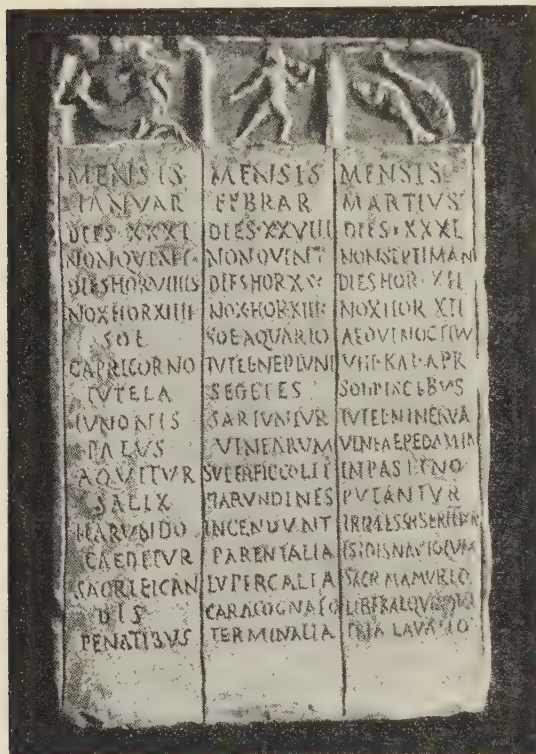 MENSIS
IANVAR
DIES·XXXI
NONQVINT·
DIESHORVIIIIS
NOXHORXIIII
SOL
CAPRICORNO
TVTELA
IVNONIS
PALVS
AQVITVR
SALIX
HARVNDO
CAEDETVR
SACRIFICAN
DIS
PENATIBVS
MENSIS
FEBRAR
DIES·XXVIII
NONQVINT
DIESHORXS·
NOXHORXIII·
SOLAQVARIO
TVTELNEPTVNI
SEGETES
SARIVNTVR
VINEARVM
SVPERFICCOLIT
HARVNDINES
INCENDVNT
PARENTALIA
LVPERCALIA
CARACOGNATIO
TERMINALIA
MENSIS
MARTIVS
DIES·XXXI
NONSEPTIMAN
DIESHOR·XII
NOXHOR XII
AEQVINOCTIVM
VIII·KAL·APR
SOLPISCIBVS
TVTELMINERVA
VINEAEPEDAMIN
INPASTINO
PVTANTVR
ISIDISNAVIGIVM
SACRMAMVRIO
TRIALAVATIO